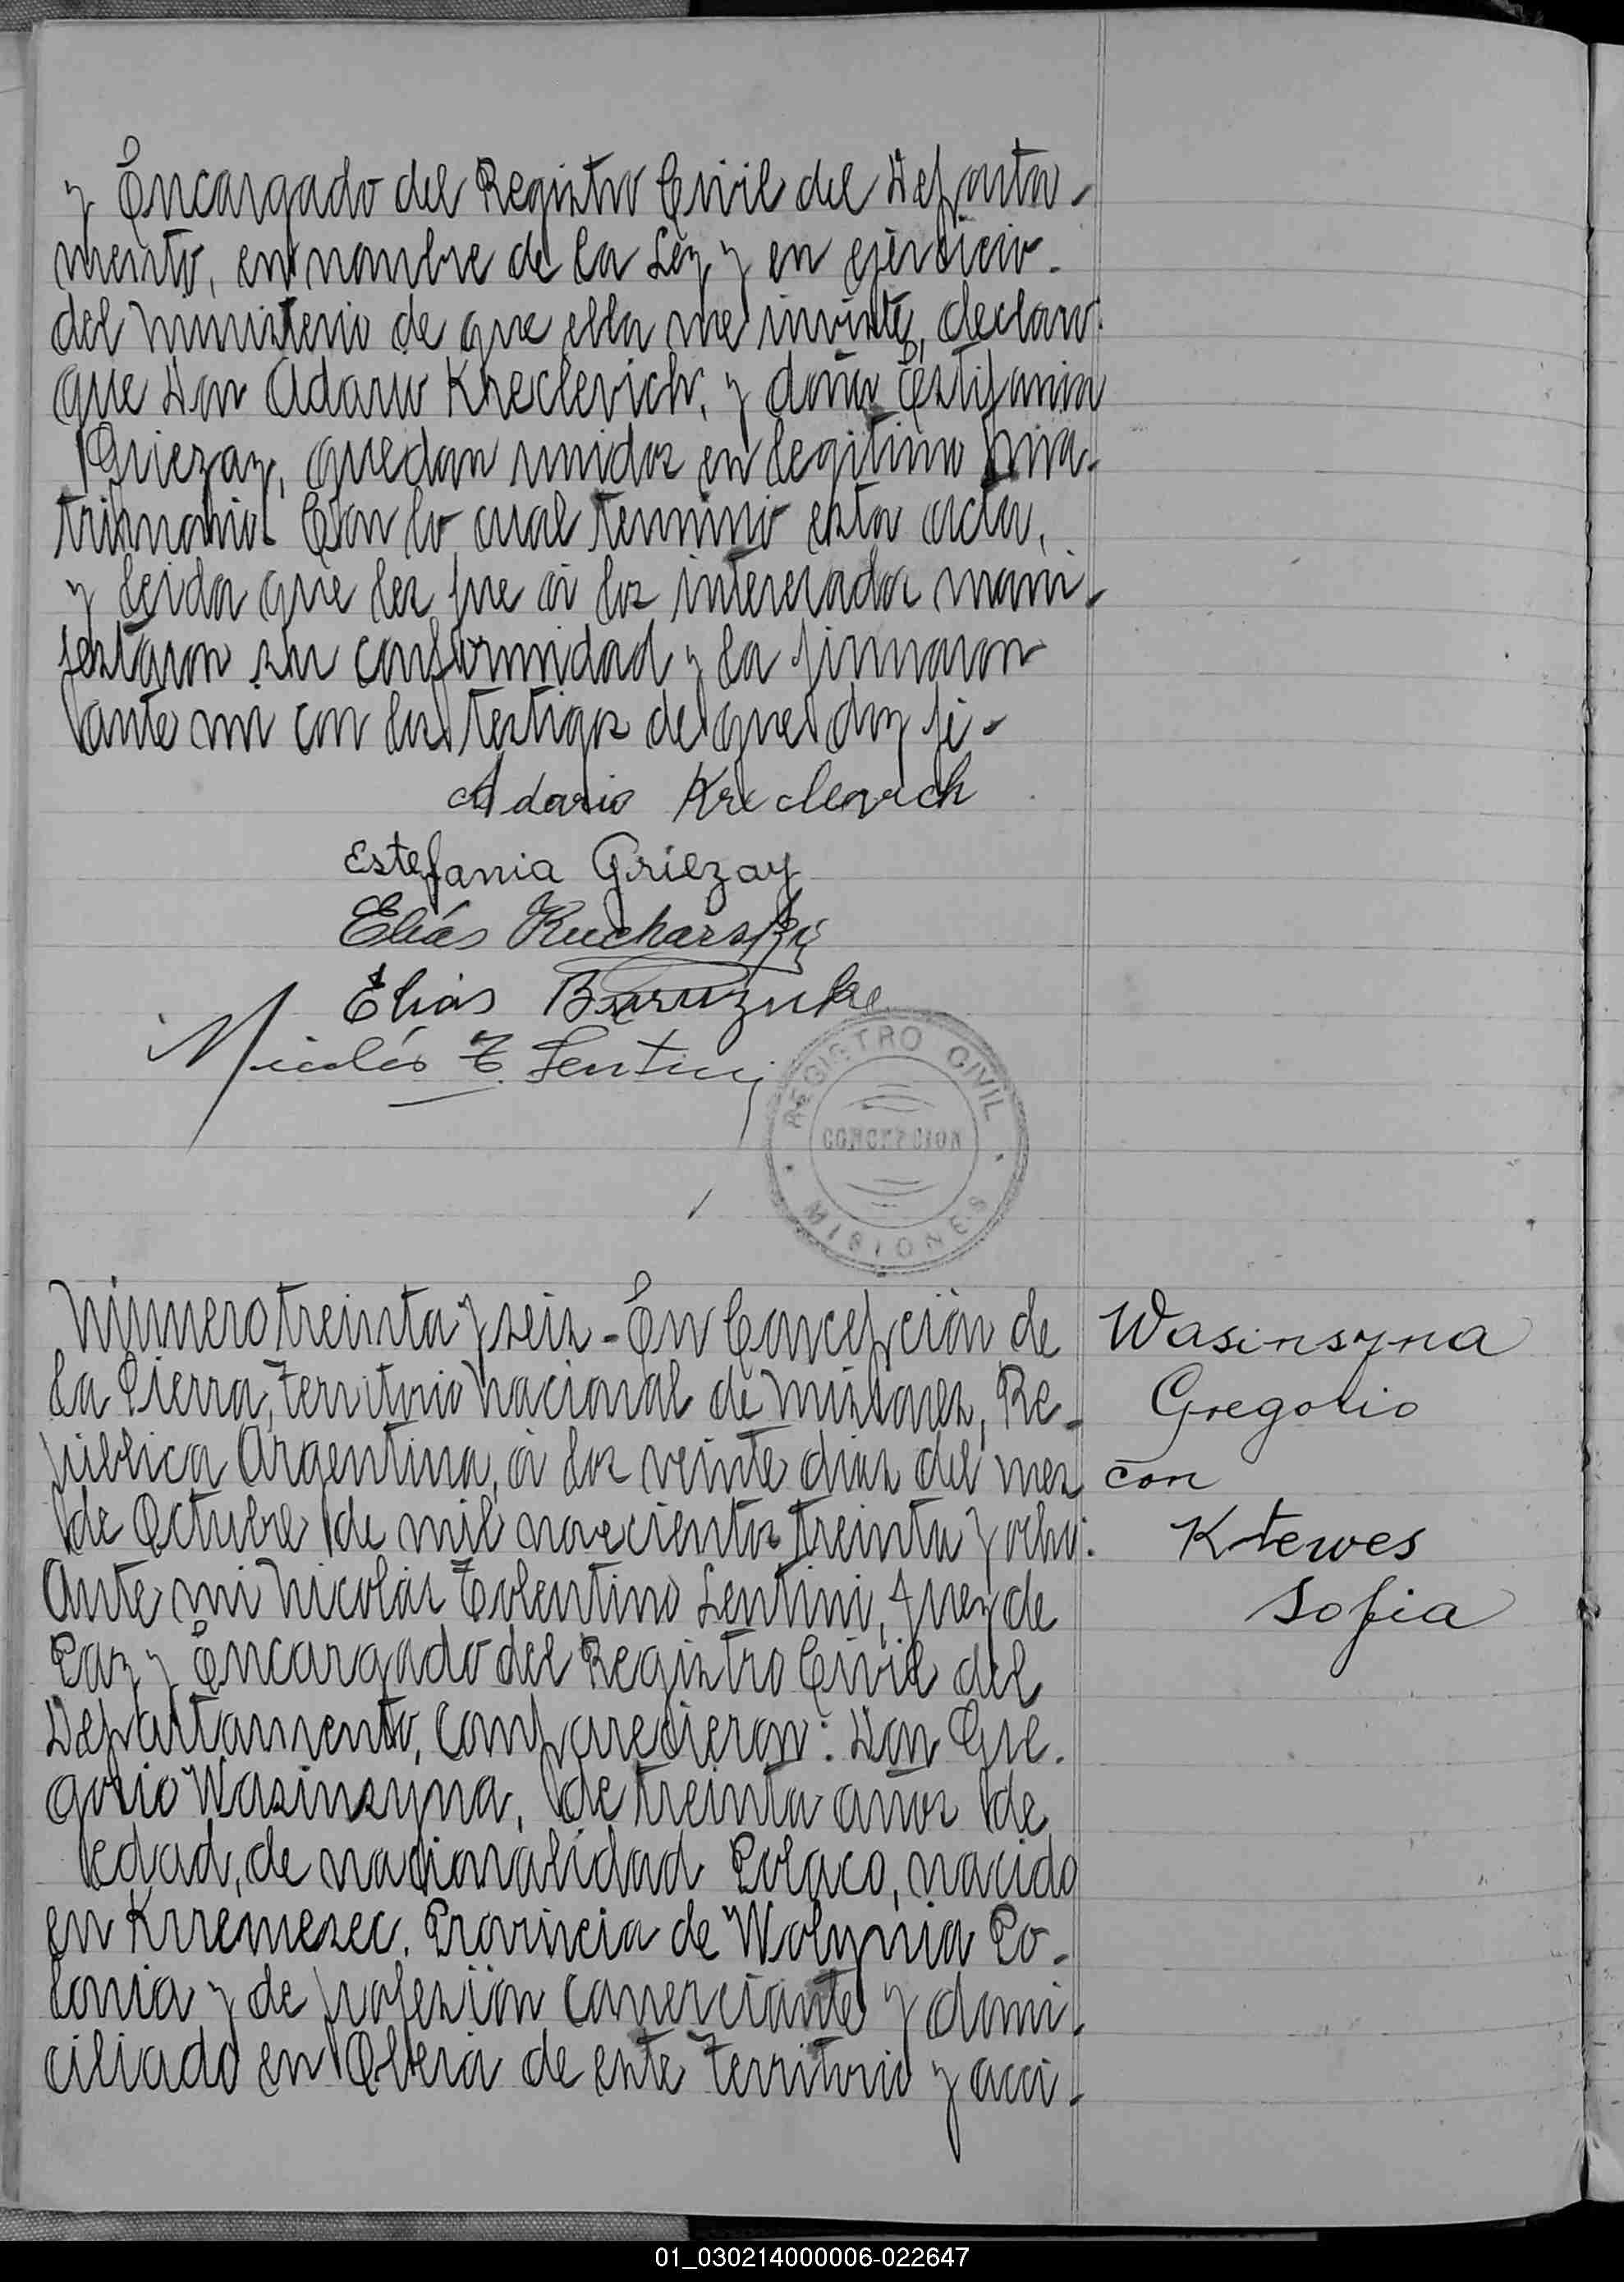 y Encargado del Registro Civil del Departa-
mento, en nombre de la Ley y en ejercicio
del ministerio de que ella me inviste, declaro
que Don Adario Kreclevich, y doña Estefania
Griezay, quedan unidos en legitimo ma-
trimonio. Con lo cual termino esta acta,
y leida que les fue á los interesados mani-
festaron su conformidad y la firmaron
ante mi con los testigos de que doy fé-
Adario Kreclevich
Estefania Griezay
Elías Kucharski
Elias
Nicolás T. Lentini
REGISTRO CIVIL
CONCEPCION
MISIONES
Número treinta y seis - En Concepción de
la Sierra, Territorio Nacional de Misiones, Re-
pública Argentina, á los veinte dias del mes
de Octubre de mil novecientos treinta y ocho:
Ante mi Nicolás Tolentino Lentini, Juez de
Paz y Encargado del Registro Civil del
Departamento, comparecieron: Don Gre-
gorio Wasinsyna, de treinta años de
edad, de nacionalidad Polaco, nacido
en Krremesec, Provincia de Wolynia Po-
lonia y de profesión comerciante y domi-
ciliado en Oberá de este Territorio y acci-
Wasinsyna
Gregorio
con
Ktewes
Sofia
01_030214000006-022647